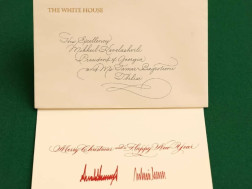 THE WHITE HOUSE
His Excellency
Mikheil Kavelashvili
President of Georgia
and Ms. Tamar Bagrationi
Tbilisi
Merry Christmas and Happy New Year